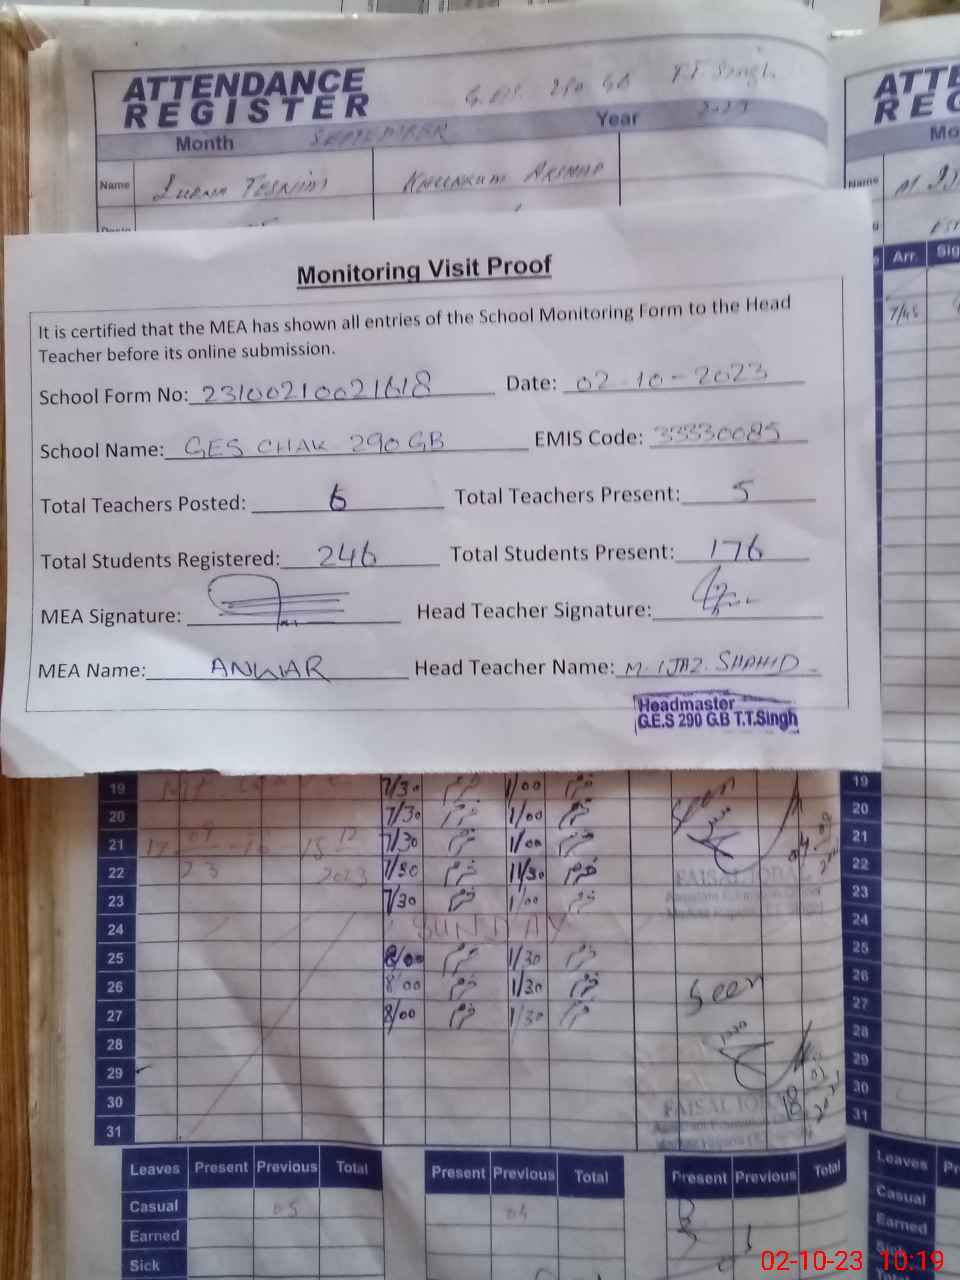 ATTENDANCE
REGISTER
G.E.S. 290 GB T.T Singh
Month SEPTEMBER Year 2023
Name
ATTE
REG
Mo
Name
Arr. Sig
7/45
Monitoring Visit Proof
It is certified that the MEA has shown all entries of the School Monitoring Form to the Head
Teacher before its online submission.
School Form No: 23100210021618 Date: 02-10-2023
School Name: GES CHAK 290 GB EMIS Code: 33330085
Total Teachers Posted: 6 Total Teachers Present: 5
Total Students Registered: 246 Total Students Present: 176
MEA Signature: Head Teacher Signature:
MEA Name: ANWAR Head Teacher Name: M. IJAZ. SHAHID
Headmaster
G.E.S 290 G.B T.T.Singh
19 7/30 1/00 19
20 7/30 1/00 Seen 20
21 7/30 1/00 21
22 2023 7/30 11/30 FAISAL IQBAL 22
23 7/30 1/00 23
24 SUNDAY 24
25 8/00 1/30 25
26 8/00 1/30 Seen 26
27 8/00 1/30 27
28 28
29 29
30 FAISAL IQBAL 30
31 31
Leaves Present Previous Total Present Previous Total Present Previous Total Leaves
Casual 05 04 Casual
Earned Earned
Sick Sick
02-10-23 10:19